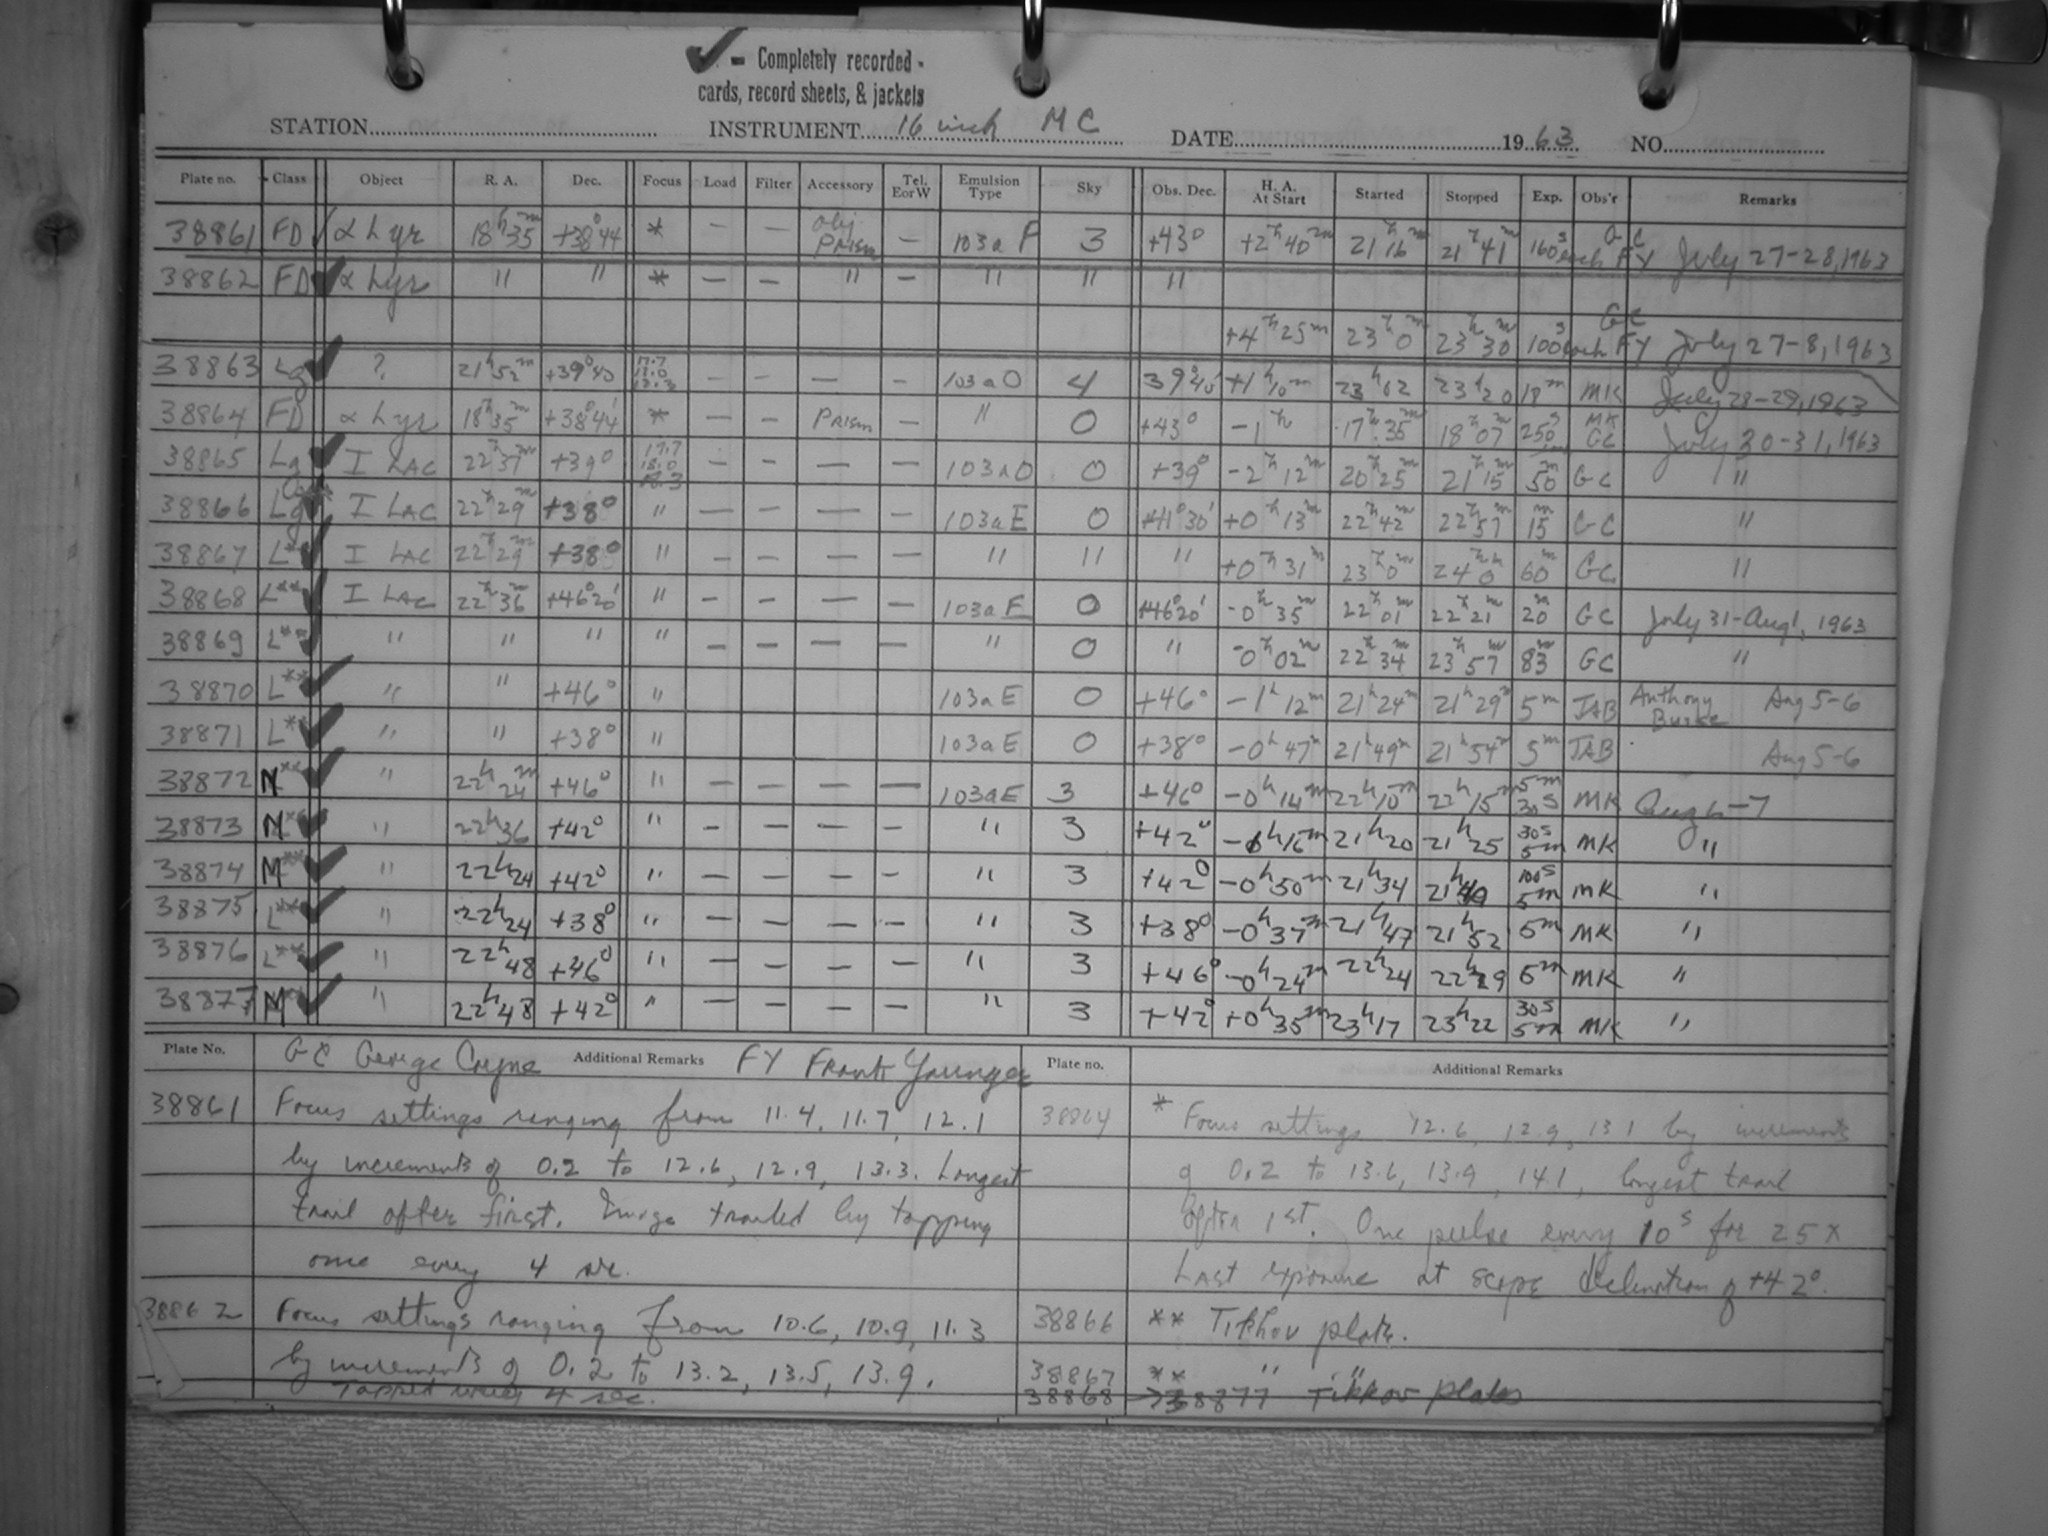 ✓ - Completely recorded -
cards, record sheets, & jackets
STATION INSTRUMENT 16 inch MC DATE 1963 NO.
Plate no. Class Object R. A. Dec. Focus Load Filter Accessory Tel. E or W Emulsion Type Sky Obs. Dec. H. A. At Start Started Stopped Exp. Obs'r Remarks
38861 FD ✓ α Lyr 18h 35m +38° 44 * — — Obj Prism — 103a F 3 +43° +2h 40m 21 16 21h 41m 160s each GC FY July 27-28, 1963
38862 FD ✓ α Lyr " " * — — " — " " "
+4h 25m 23h 0m 23h 30m 100s each GC FY July 27-8, 1963
38863 Lg ✓ ? 21h 52m +39° 40 — — — — 103aO 4 39° 40' +1h 10m 23h 02 23h 20 18m MK July 28-29, 1963
38864 FD α Lyr 18h 35m +38° 44' * — — Prism — " 0 +43° -1h 17h 35m 18h 07m 250s MK GC July 30-31, 1963
38865 Lg ✓ I LAC 22h 37m +39° 17.7 18.0 18.3 — — — — 103aO 0 +39° -2h 12m 20h 25m 21h 15m 50m GC "
38866 Lg ✓ I LAC 22h 29m +38° " — — — — 103aE 0 +41° 30' +0h 13m 22h 42m 22h 57m 15m GC "
38867 L** ✓ I LAC 22h 29m +38° " — — — — " " " +0h 31m 23h 0m 24h 0m 60m GC "
38868 L** ✓ I LAC 22h 36m +46° 20' " — — — — 103aE 0 +46° 20' -0h 35m 22h 01m 22h 21m 20m GC July 31-Aug 1, 1963
38869 L** ✓ " " " " — — — — " 0 " -0h 02m 22h 34m 23h 57m 83m GC "
38870 L** ✓ " " +46° " 103aE 0 +46° -1h 12m 21h 24m 21h 29m 5m JAB Anthony Burke Aug 5-6
38871 L** ✓ " " +38° " 103aE 0 +38° -0h 47m 21h 49m 21h 54m 5m JAB Aug 5-6
38872 M** ✓ " 22h 24m +46° " — — — — 103aE 3 +46° -0h 14m 22h 10m 22h 15m 5m 30s MK Aug 6-7
38873 M** ✓ " 22h 36 +42° " — — — — " 3 +42° 16m 21h 20 21h 25 30s 5m MK "
38874 M** ✓ " 22h 24 +42° " — — — — " 3 +42° -0h 50m 21h 34 100s 5m MK "
38875 L** ✓ " 22h 24 +38° " — — — — " 3 +38° -0h 37m 21h 47 21h 52 5m MK "
38876 L** ✓ " 22h 48 +46° " — — — — " 3 +46° -0h 24m 22h 24 22h 29 5m MK "
38877 M** ✓ " 22h 48 +42° " — — — — " 3 +42° +0h 35m 23h 17 23h 22 30s 5m MK "
Plate No. GC George Coyne Additional Remarks FY Frank Younger Plate no. Additional Remarks
38861 Focus settings ranging from 11.4, 11.7, 12.1
by increments of 0.2 to 12.6, 12.9, 13.3. Longest
trail after first. Image trailed by tapping
once every 4 sec.
38862 Focus settings ranging from 10.6, 10.9, 11.3
by increments of 0.2 to 13.2, 13.5, 13.9.
Tapped every 4 sec.
38864 * Focus settings 12.6, 12.9, 13.1 by increments
of 0.2 to 13.6, 13.9, 14.1, longest trail
after 1st. One pulse every 10s for 25x
Last exposure at scope declination of +42°.
38866 ** Tikhov plate.
38867 ** " "
38868 → 38877 Tikhov plates